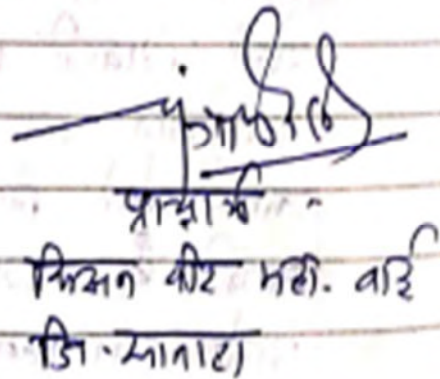 प्राचार्य
किसन वीर महा. वाई
जि. सातारा